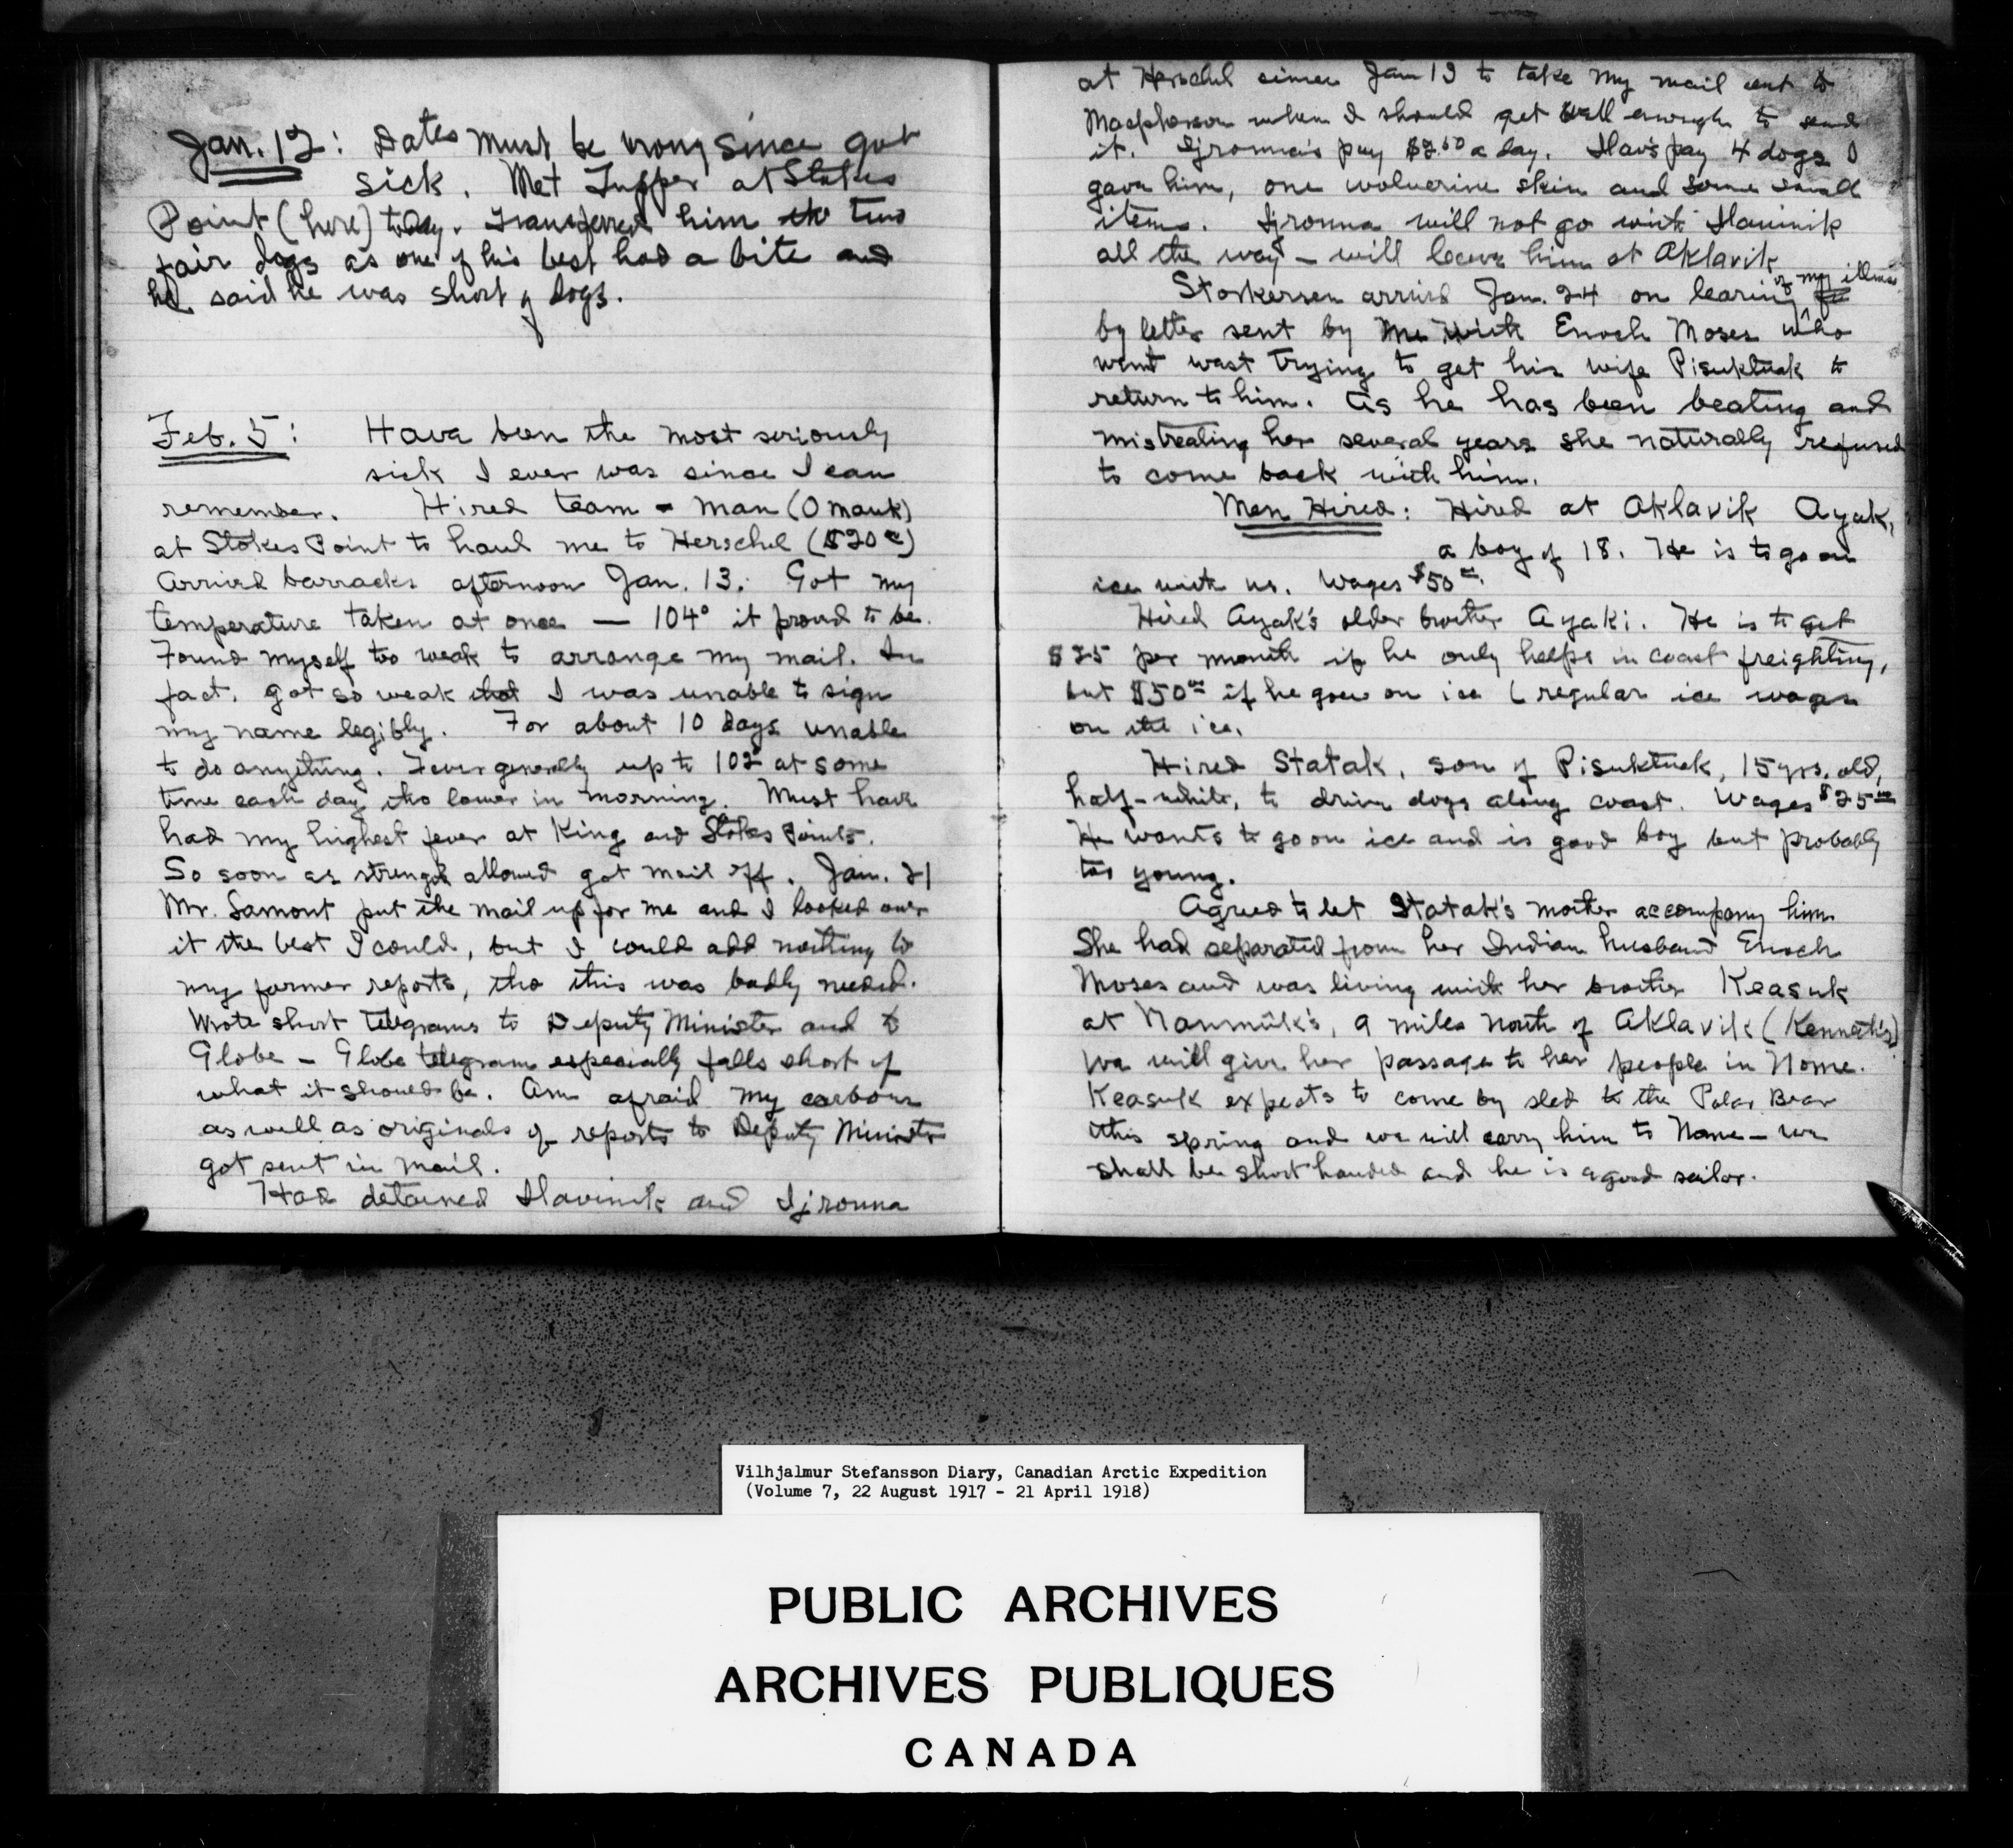 Jan. 12: Dates must be wrong since got
sick. Met Tupper at Stokes
Point (here) today. Transferred him two
fair dogs as one of his best had a bite and
he said he was short of dogs.
Feb. 5: Have been the most seriously
sick I ever was since I can
remember. Hired team - man (Omauk)
at Stokes Point to haul me to Herschel ($20 00)
Arrived barracks afternoon Jan. 13. Got my
temperature taken at once — 104° it proved to be.
Found myself too weak to arrange my mail. In
fact, got so weak that I was unable to sign
my name legibly. For about 10 days unable
to do anything. Fever generally up to 102° at some
time each day tho lower in morning. Must have
had my highest fever at King and Stokes Points.
So soon as strength allowed got mail off. Jan. 21
Mr. Lamont put the mail up for me and I looked over
it the best I could, but I could add nothing to
my former reports, tho this was badly needed.
Wrote short telegrams to Deputy Minister and to
Globe — Globe telegram especially falls short of
what it should be. Am afraid my carbons
as well as originals of reports to Deputy Minister
got sent in mail.
Had detained Ilavinik and Ijrouna
at Herschel since Jan 13 to take my mail out to
Macpherson when I should get well enough to send
it. Ijrouna's pay $2.50 a day. Ilav's pay 4 dogs I
gave him, one wolverine skin and some small
items. Ijrouna will not go with Ilavinik
all the way — will leave him at Aklavik
Storkersen arrived Jan. 24 on learning of my illness
by letter sent by me with Enoch Moses who
went west trying to get his wife Pisuktuak to
return to him. As he has been beating and
mistreating her several years she naturally refused
to come back with him.
Men Hired: Hired at Aklavik Ayak,
a boy of 18. He is to go on
ice with us. Wages $50 00.
Hired Ayak's older brother Ayaki. He is to get
$25 per month if he only helps in coast freighting,
but $50 00 if he goes on ice (regular ice wages
on the ice.
Hired Statak, son of Pisuktuak, 15 yrs. old,
half-white, to drive dogs along coast. Wages $25 00
He wants to go on ice and is good boy but probably
too young.
Agreed to let Statak's mother accompany him
She had separated from her Indian husband Enoch
Moses and was living with her brother Keasuk
at Nanmûk's, 9 miles north of Aklavik (Kenneth's)
We will give her passage to her people in Nome.
Keasuk expects to come by sled to the Polar Bear
this spring and we will carry him to Nome — we
shall be short handed and he is a good sailor.
Vilhjalmur Stefansson Diary, Canadian Arctic Expedition
(Volume 7, 22 August 1917 - 21 April 1918)
PUBLIC ARCHIVES
ARCHIVES PUBLIQUES
CANADA